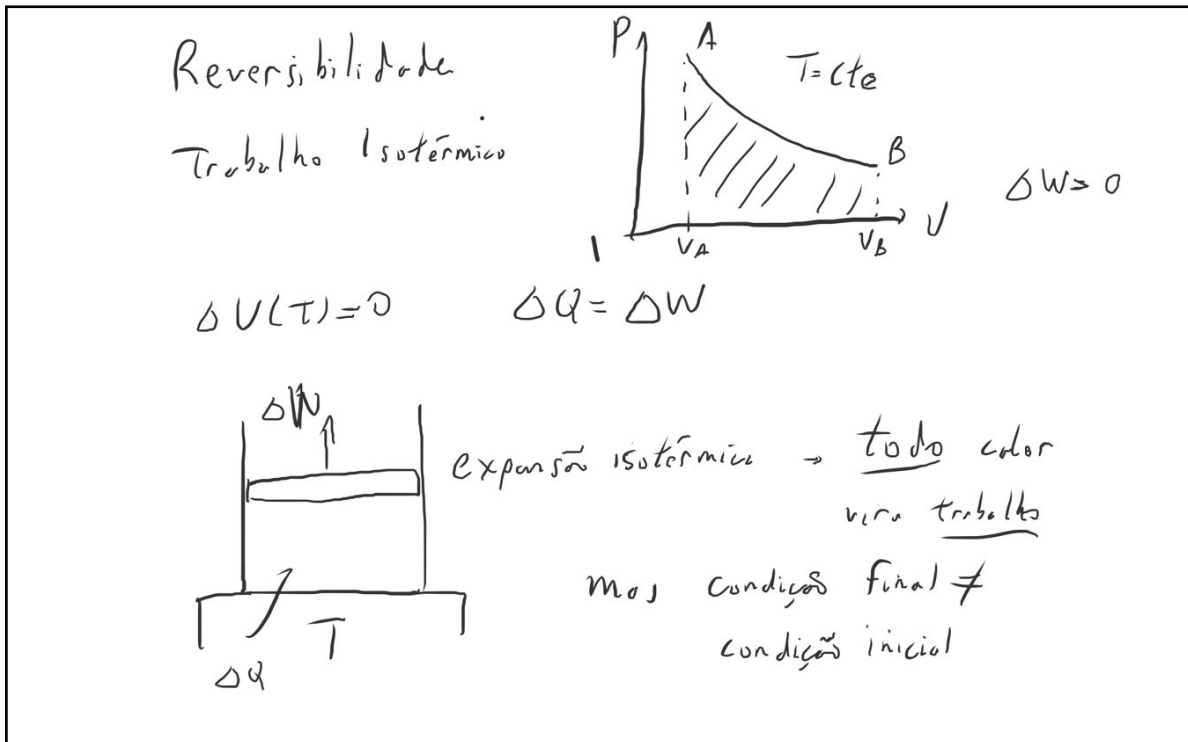 Reversibilidade
Trabalho Isotérmico
P
A
T=cte
B
V_A
V_B
V
ΔW>0
ΔU(T)=0
ΔQ=ΔW
ΔW
expansão isotérmica → todo calor
vira trabalho
mas condição final ≠
condição inicial
T
ΔQ